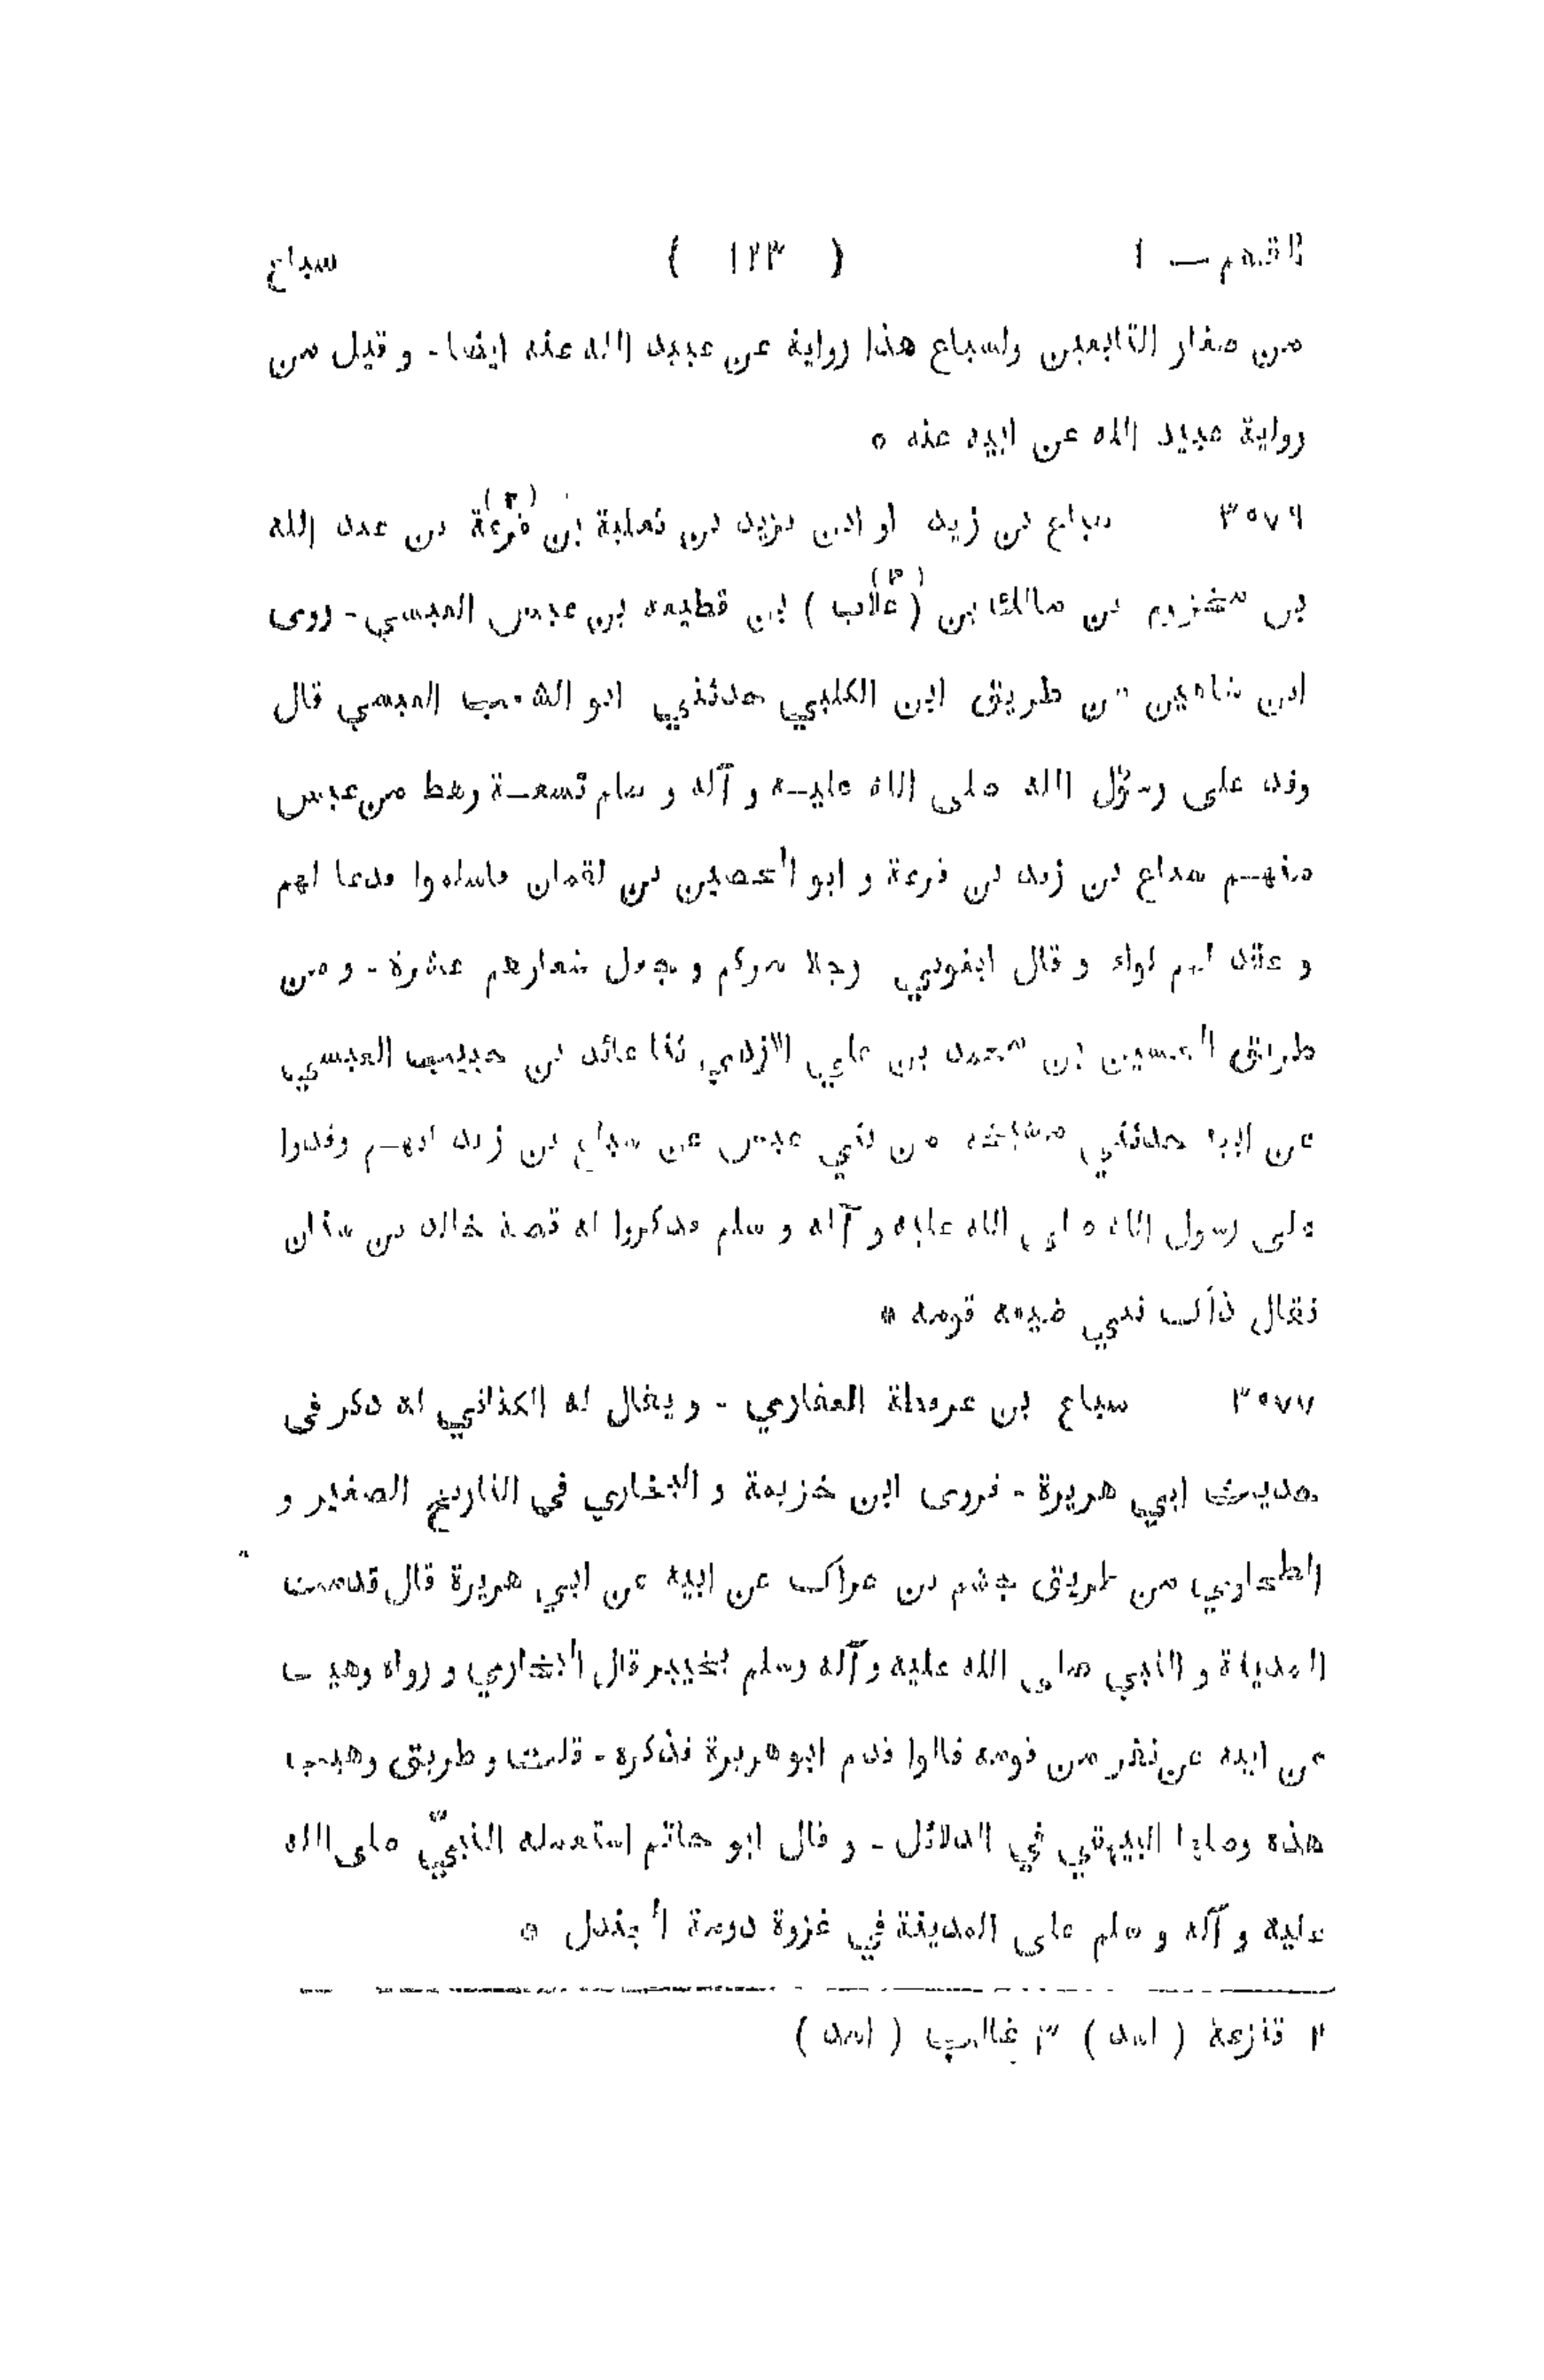 القسم — ١ ( ١٢٣ ) سباع
من صغار التابعين ولسباع هذا رواية عن عبيد الله عنه ايضا - و قيل من
رواية عبيد الله عن ابيه عنه *
٣٥٧٦ سباع بن زيد او ابن يزيد بن ثعلبة بن قزعة (٢) بن عبد الله
بن مخزوم بن مالك بن ( غلاب ) (٣) بن قطيعه بن عبس العبسي - روى
ابن شاهين من طريق ابن الكلبي حدثني ابو الشغب العبسي قال
وفد على رسول الله صلى الله عليه و آله و سلم تسعة رهط من عبس
منهم سباع بن زيد بن قزعة و ابو الحصين بن لقمان فاسلموا فدعا لهم
و عقد لهم لواء و قال ابغوني رجلا و جعل شعارهم عشرة - و من
طريق الحسين بن محمد بن علي الازدي ثنا عائد بن حبيب العبسي
عن ابيه حدثني مشيخة من بني عبس عن سباع بن زيد انهم وفدوا
على رسول الله صلى الله عليه و آله و سلم فذكروا له قصة خالد بن سنان
فقال ذاك نبي ضيعه قومه *
٣٥٧٧ سباع بن عرفطة الغفاري - و يقال له الكناني له ذكر في
حديث ابي هريرة - فروى ابن خزيمة و البخاري في التاريخ الصغير و
الطحاوي من طريق خثيم بن عراك عن ابيه عن ابي هريرة قال قدمت
المدينة و النبي صلى الله عليه و آله وسلم بخيبر قال البخاري و رواه وهيب
عن ابيه عن نفر من قومه قالوا قدم ابو هريرة فذكره - قلت و طريق وهيب
هذه وصلها البيهقي في الدلائل - و قال ابو حاتم استعمله النبيّ صلى الله
عليه و آله و سلم على المدينة في غزوة دومة الجندل *
٢ قنزعة ( اسد ) ٣ غالب ( اسد )